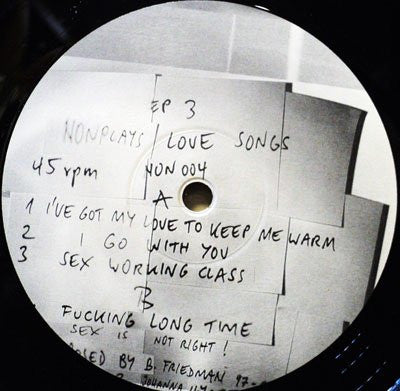 EP 3
NONPLAYS / LOVE SONGS
45 rpm NON 004
A
1 I'VE GOT MY LOVE TO KEEP ME WARM
2 I GO WITH YOU
3 SEX WORKING CLASS
B
FUCKING LONG TIME
SEX IS NOT RIGHT!
BY B. FRIEDMAN 97-
JOHANNA